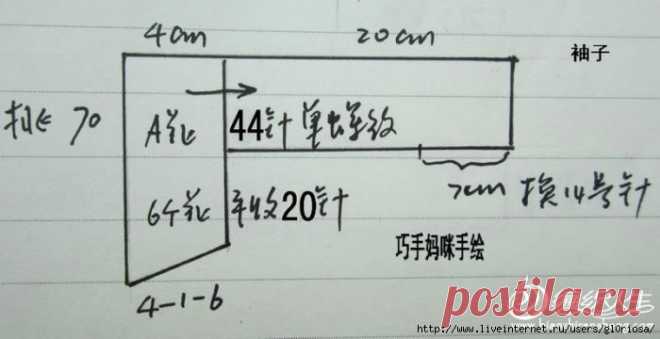 4cm 20cm 袖子
挑 70 A花 44针单螺纹
6个花 平收20针 7cm 换14号针
巧手妈咪手绘
4-1-6
postila.ru
http://www.liveinternet.ru/users/gloriosa/